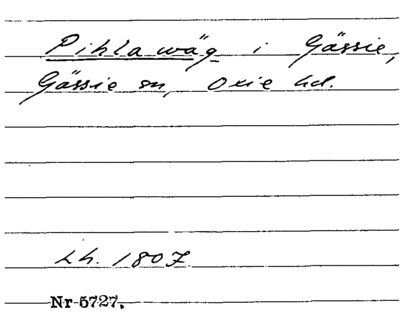 Pihla wäg i Gässie,
Gässie sn, Oxie hd.
Lh. 1807
Nr 5727.